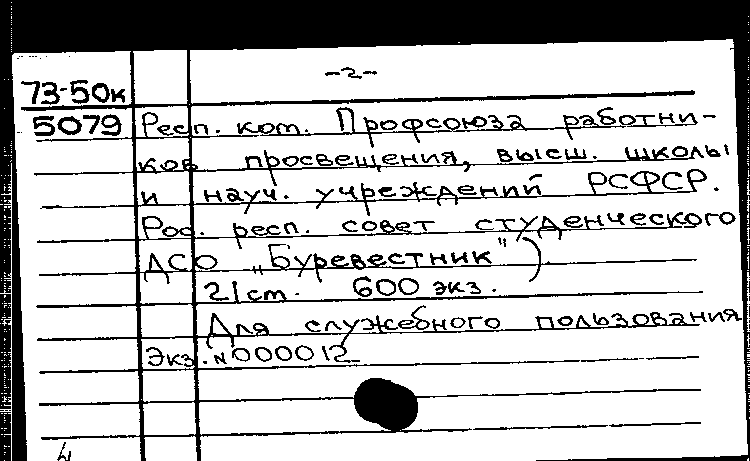 -2-
73-50к
5079 Респ. ком. Профсоюза работни-
ков просвещения, высш. школы
и науч. учреждений РСФСР.
Рос. респ. совет студенческого
ДСО „Буревестник").
21 см. 600 экз.
Для служебного пользования
Экз. N000012